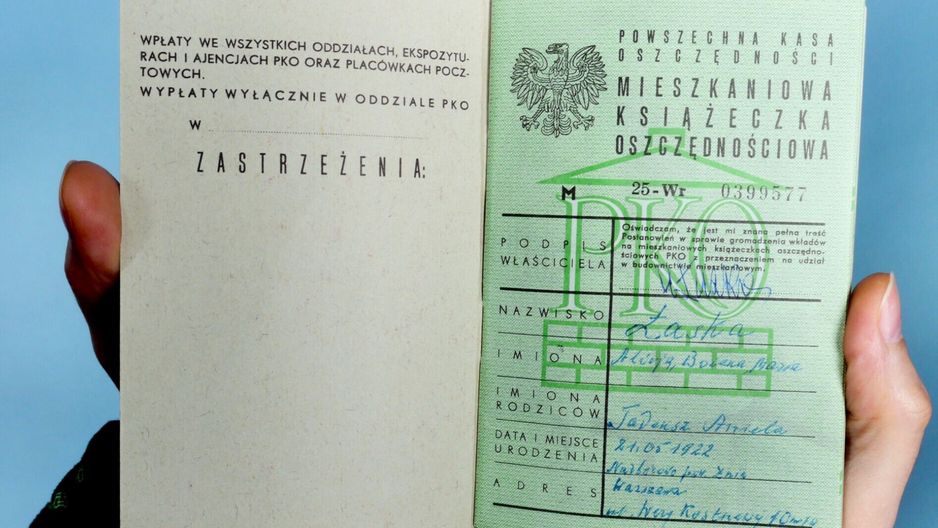 WPŁATY WE WSZYSTKICH ODDZIAŁACH, EKSPOZYTU-
RACH I AJENCJACH PKO ORAZ PLACÓWKACH POCZ-
TOWYCH.
WYPŁATY WYŁĄCZNIE W ODDZIALE PKO
W
ZASTRZEŻENIA:
POWSZECHNA KASA
OSZCZĘDNOŚCI
MIESZKANIOWA
KSIĄŻECZKA
OSZCZĘDNOŚCIOWA
M 25-Wr 0399577
PKO
Oświadczam, że jest mi znana pełna treść
Postanowień w sprawie gromadzenia wkładów
na mieszkaniowych książeczkach oszczędno-
ściowych PKO z przeznaczeniem na udział
w budownictwie mieszkaniowym.
PODPIS
WŁAŚCICIELA
NAZWISKO Łaska
IMIONA Alicja, Bożena Maria
IMIONA
RODZICÓW Tadeusz Aniela
DATA I MIEJSCE 21.05.1922
URODZENIA
ADRES Warszawa
ul.